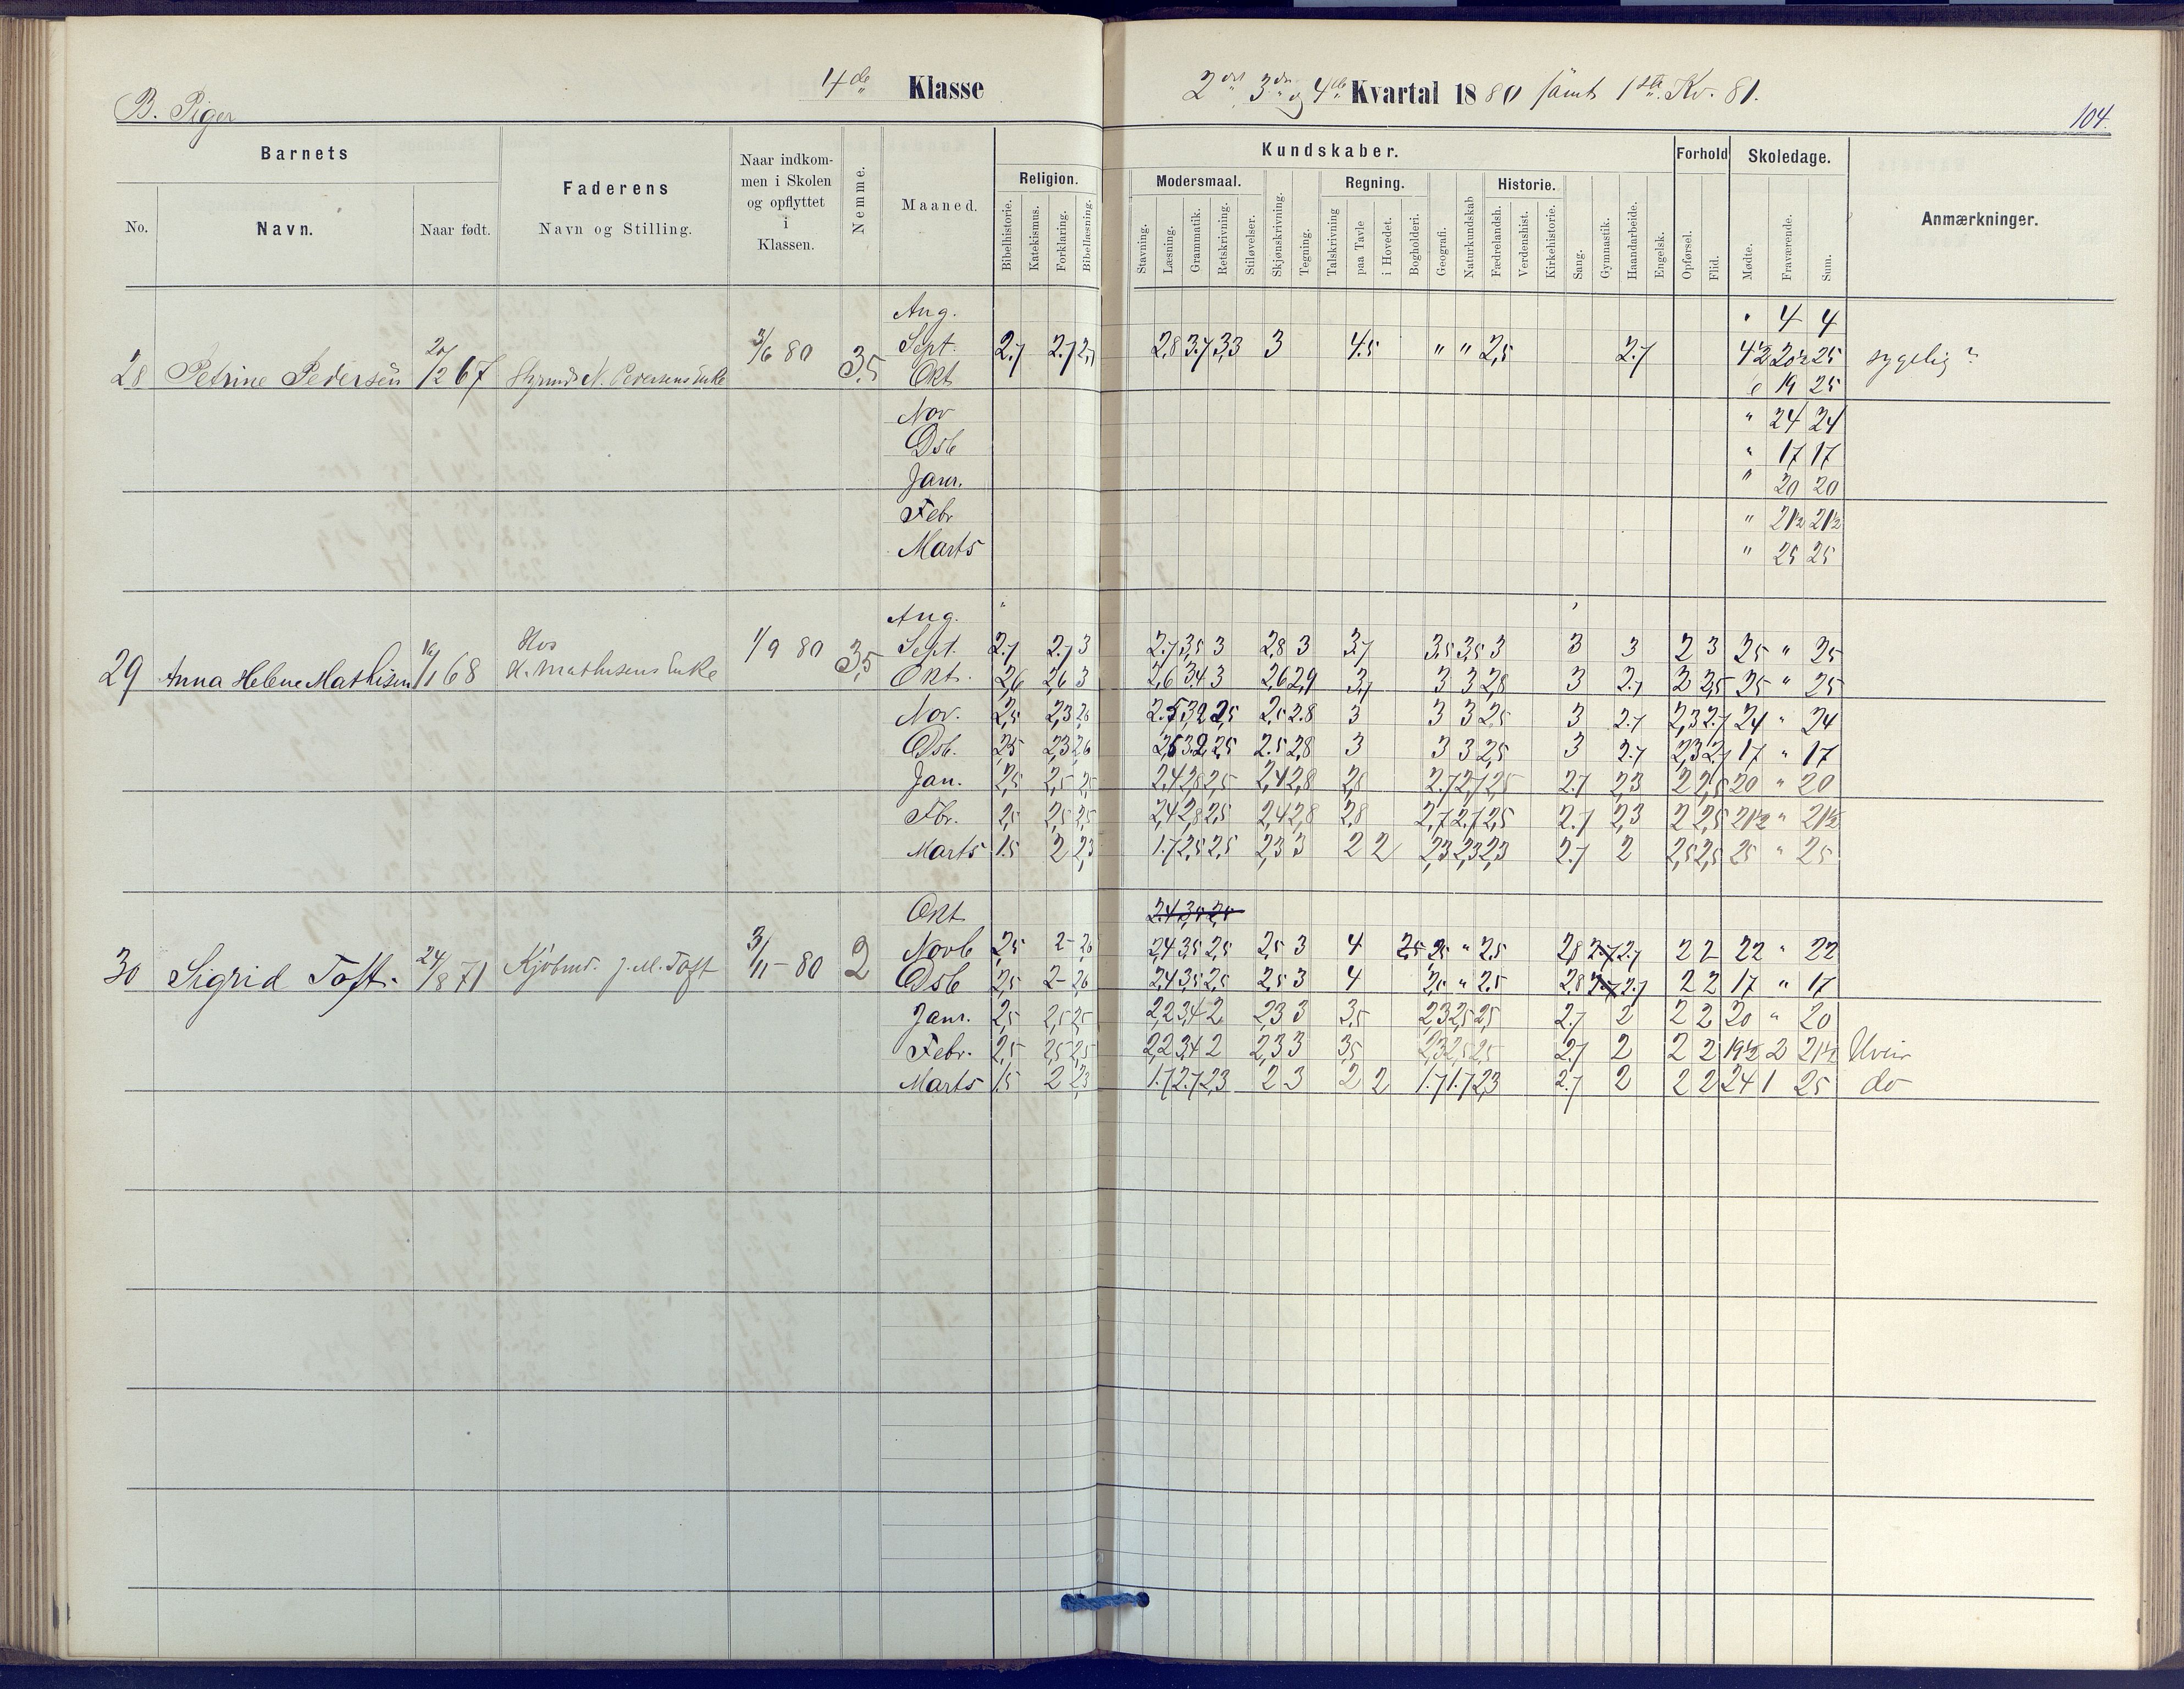 B. Piger
4de Klasse
2det 3die og 4de Kvartal 1880 samt 1ste Kv. 81.
104.
Barnets
No.
Navn.
Naar født.
Faderens
Navn og Stilling.
Naar indkom-
men i Skolen
og opflyttet
i
Klassen.
Nemme.
Maaned.
Kundskaber.
Religion.
Bibelhistorie.
Katekismus.
Forklaring.
Bibellæsning.
Modersmaal.
Stavning.
Læsning.
Grammatik.
Retskrivning.
Stiløvelser.
Skjønskrivning.
Tegning.
Regning.
Talskrivning
paa Tavle
i Hovedet.
Bogholderi.
Geografi.
Naturkundskab
Historie.
Fædrelandsh.
Verdenshist.
Kirkehistorie.
Sang.
Gymnastik.
Haandarbeide.
Engelsk.
Forhold
Opførsel.
Flid.
Skoledage.
Mødte.
Fraværende.
Sum.
Anmærkninger.
Aug. " 4 4
28 Petrine Pedersen 67 N. Pedersens Enke 3/6 80 3,5
Sept. 2.7 2.7 2,7 2,8 3.7 3,3 3 4.5 " " 2,5 2.7 4½ 20½ 25 sygelig?
Okt 6 19 25
Nov " 24 24
Dsb " 17 17
Janr. " 20 20
Febr " 21½ 21½
Marts " 25 25
Aug.
29 Anna Helene Mathisen 68 Hos
H. Mathisens Enke 1/9 80 3,5
Sept. 2.7 2.7 3 2.7 3,5 3 2,8 3 3,7 3,5 3,5 3 3 3 2 3 25 " 25
Okt. 2,6 2,6 3 2,6 3,4 3 2,6 2,9 3,7 3 3 2,8 3 2.7 2 2,5 25 " 25
Nov. 2,5 2,3 2,6 2.5 3,2 2,5 2,5 2.8 3 3 3 2,5 3 2.7 2,3 2.7 24 " 24
Dsb. 2,5 2,3 2,6 2,5 3.2 2,5 2.5 2,8 3 3 3 2,5 3 2.7 2,3 2,7 17 " 17
Jan. 2,5 2,5 2,5 2,4 2,8 2,5 2,4 2,8 2,8 2.7 2,7 2,5 2.7 2,3 2 2,5 20 " 20
Fbr. 2,5 2,5 2,5 2,4 2,8 2,5 2,4 2,8 2.8 2,7 2.7 2,5 2.7 2,3 2 2,5 21½ " 21½
Marts 1.5 2 2,3 1.7 2,5 2,5 2,3 3 2 2 2,3 2,3 2,3 2.7 2 2,5 2,5 25 " 25
Okt 2.4 3,5 2,5
30 Sigrid Toft. 24/8 71 Kjøbmd. J. M. Toft 3/11- 80 2
Novb 2,5 2- 2,6 2,4 3,5 2,5 2,5 3 4 2,5 2,5 " 2.5 2,8 2,7 2.7 2 2 22 " 22
Dsb 2,5 2- 2,6 2,4 3,5 2,5 2,5 3 4 2,5 " 2.5 2,8 2,7 2.7 2 2 17 " 17
Janr. 2,5 2,5 2,5 2,2 3,4 2 2,3 3 3,5 2,3 2,5 2,5 2.7 2 2 2 20 " 20
Febr. 2,5 2,5 2,5 2,2 3,4 2 2,3 3 3,5 2,3 2,5 2,5 2.7 2 2 2 19½ 2 21½ Uveir
Marts 1.5 2 2,3 1.7 2.7 2,3 2 3 2 2 1.7 1.7 2,3 2.7 2 2 2 24 1 25 do